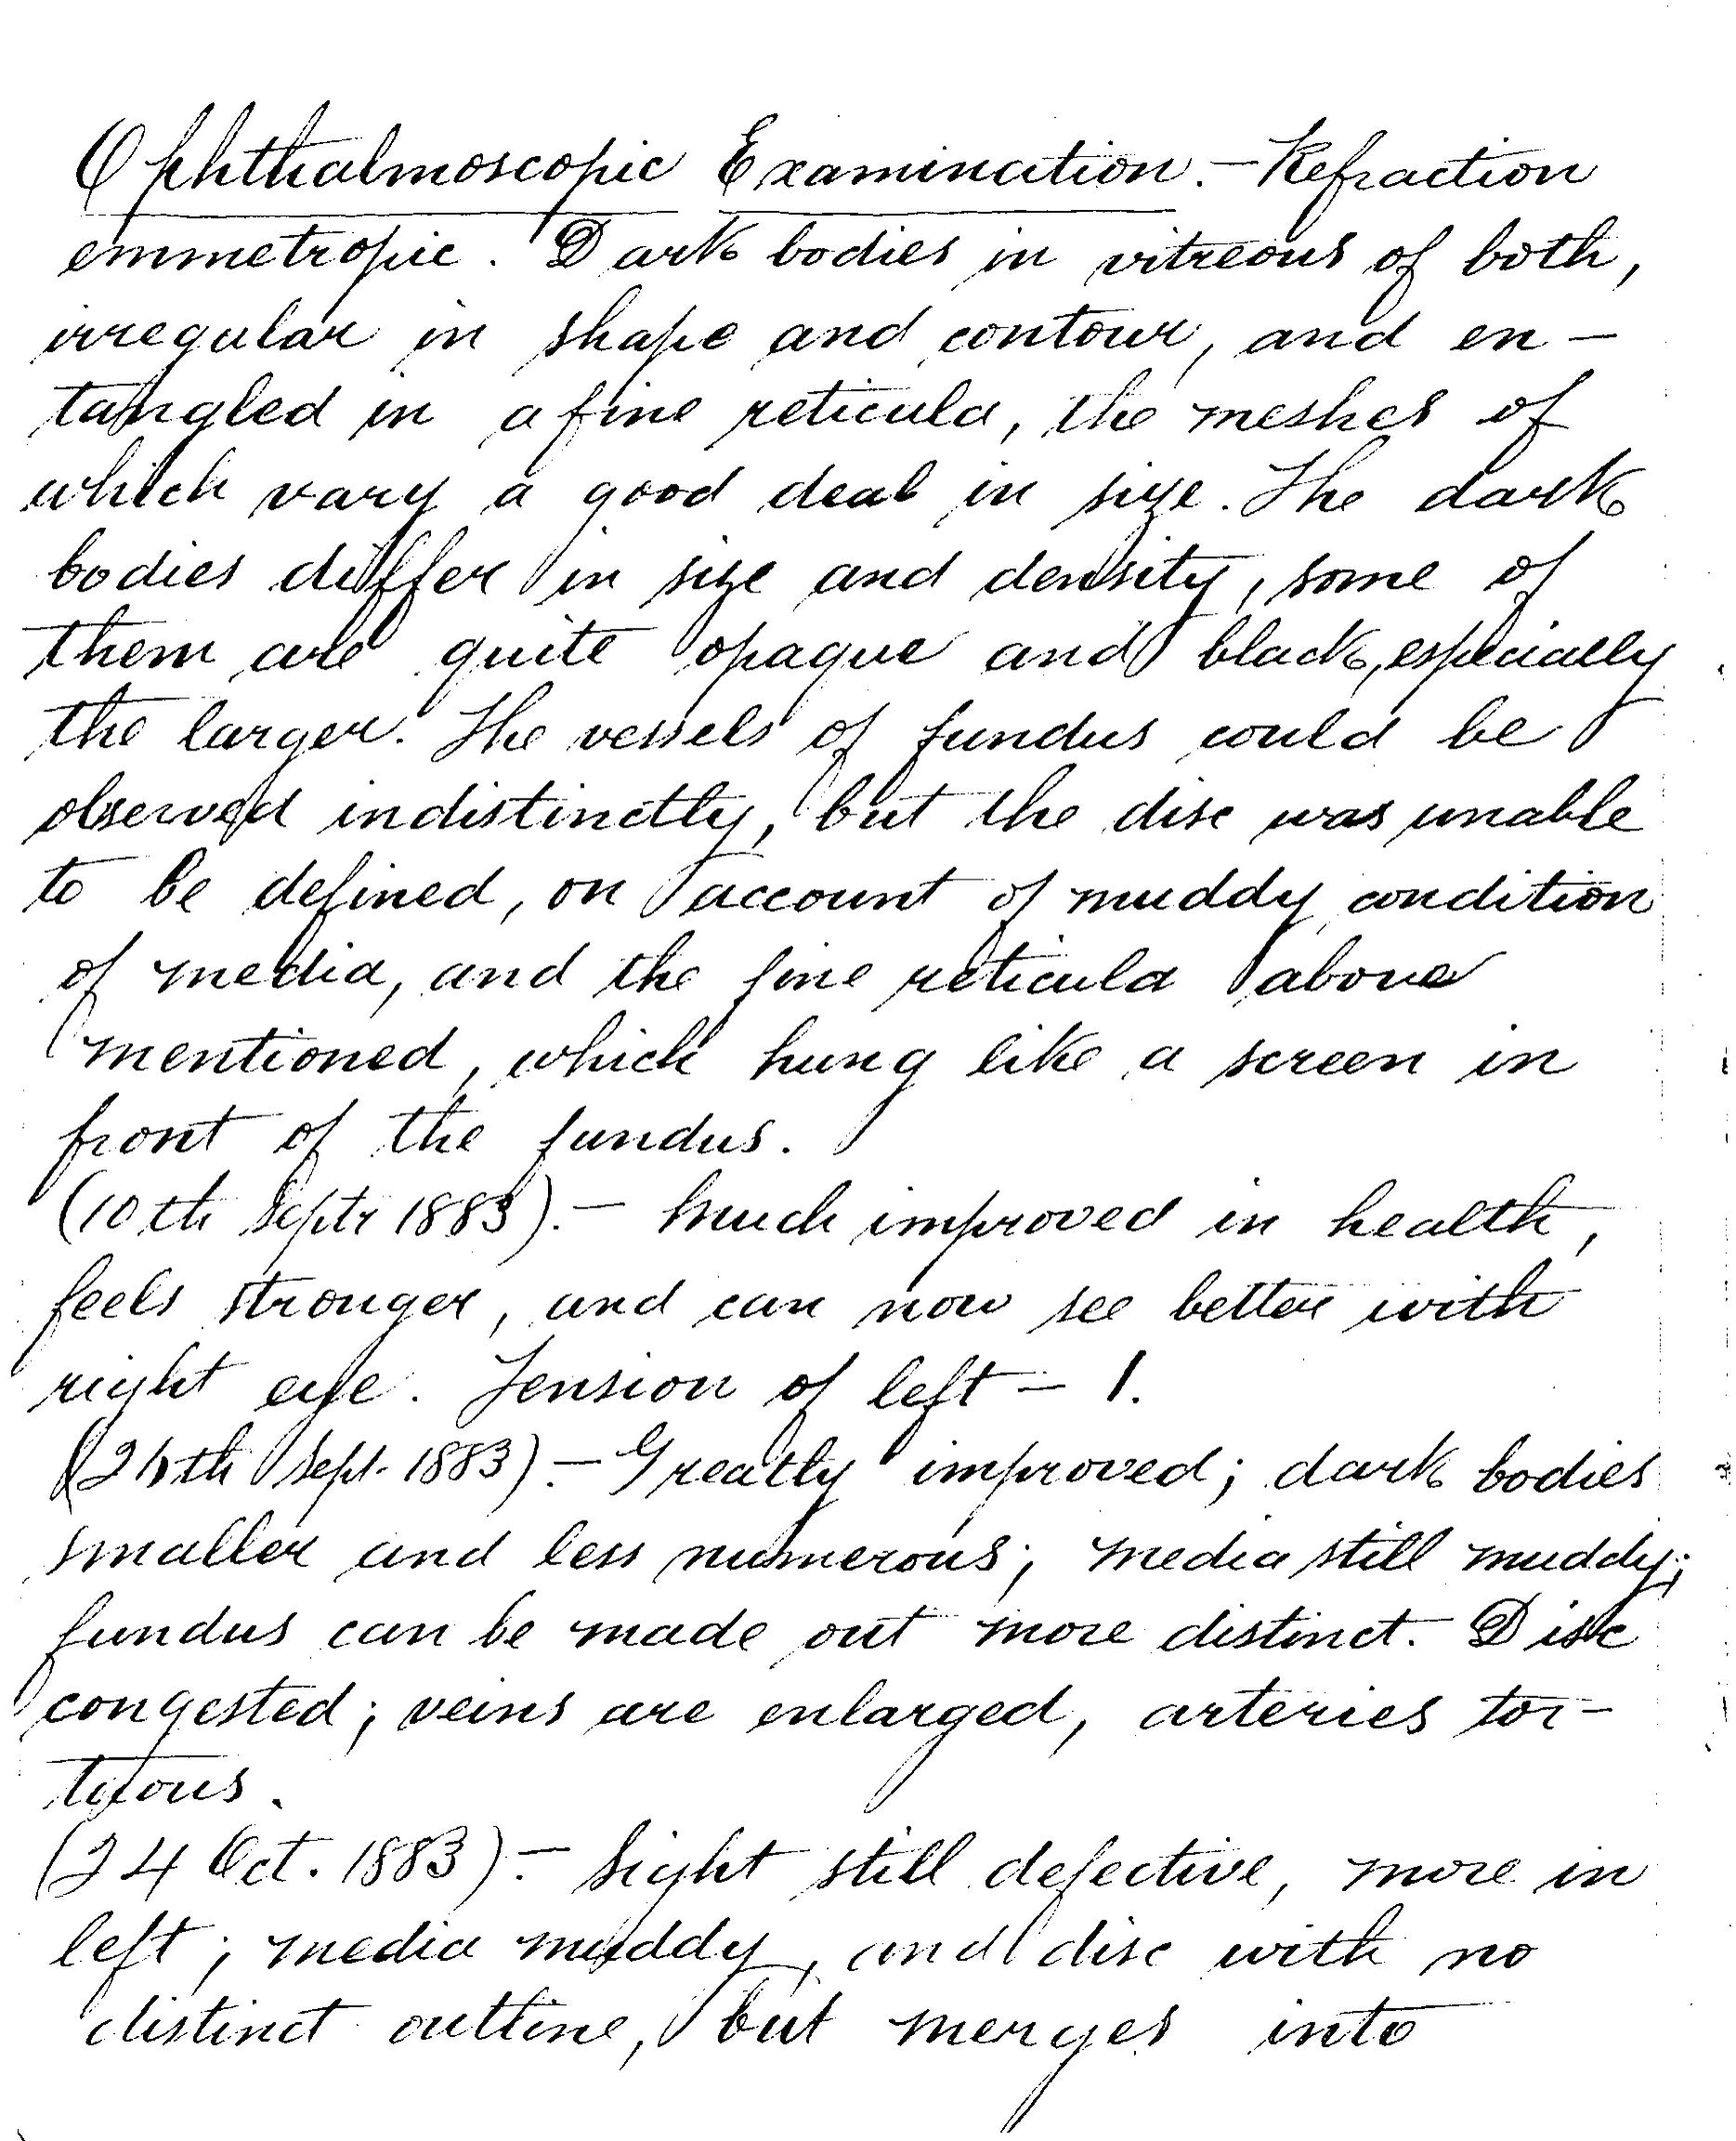 Ophthalmoscopic Examination. – Refraction
emmetropic. Dark bodies in vitreous of both,
irregular in shape and contour, and en-
tangled in a fine reticula, the meshes of
which vary a good deal in size. The dark
bodies differ in size and density, some of
them are quite opaque and black, especially
the larger. The vessels of fundus could be
observed indistinctly, but the disc was unable
to be defined, on account of muddy condition
of media, and the fine reticula above
mentioned, which hung like a screen in
front of the fundus.
(10th Septr 1883). – Much improved in health,
feels stronger, and can now see better with
right eye. Tension of left – 1.
Sept. 1883). – Greatly improved; dark bodies
smaller and less numerous; media still muddy;
fundus can be made out more distinct. Disc
congested; veins are enlarged, arteries tor-
tuous.
(24 Oct. 1883). – Sight still defective, more in
left; media muddy, and disc with no
distinct outline, but merges into